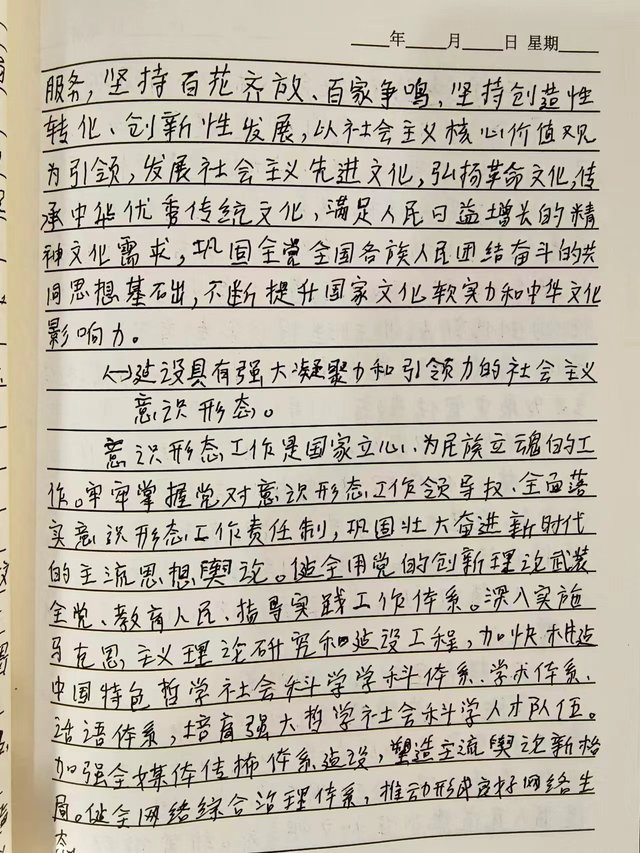 年 月 日 星期
服务，坚持百花齐放、百家争鸣，坚持创造性
转化、创新性发展，以社会主义核心价值观
为引领，发展社会主义先进文化，弘扬革命文化，传
承中华优秀传统文化，满足人民日益增长的精
神文化需求，巩固全党全国各族人民团结奋斗的共
同思想基础，不断提升国家文化软实力和中华文化
影响力。
(一)建设具有强大凝聚力和引领力的社会主义
意识形态。
意识形态工作是国家立心、为民族立魂的工
作。牢牢掌握党对意识形态工作领导权、全面落
实意识形态工作责任制，巩固壮大奋进新时代
的主流思想舆论。健全用党的创新理论武装
全党、教育人民、指导实践工作体系。深入实施
马克思主义理论研究和建设工程，加快构造
中国特色哲学社会科学学科体系、学术体系、
话语体系，培育强大哲学社会科学人才队伍。
加强全媒体传播体系建设，塑造主流舆论新格
局。健全网络综合治理体系，推动形成良好网络生
态